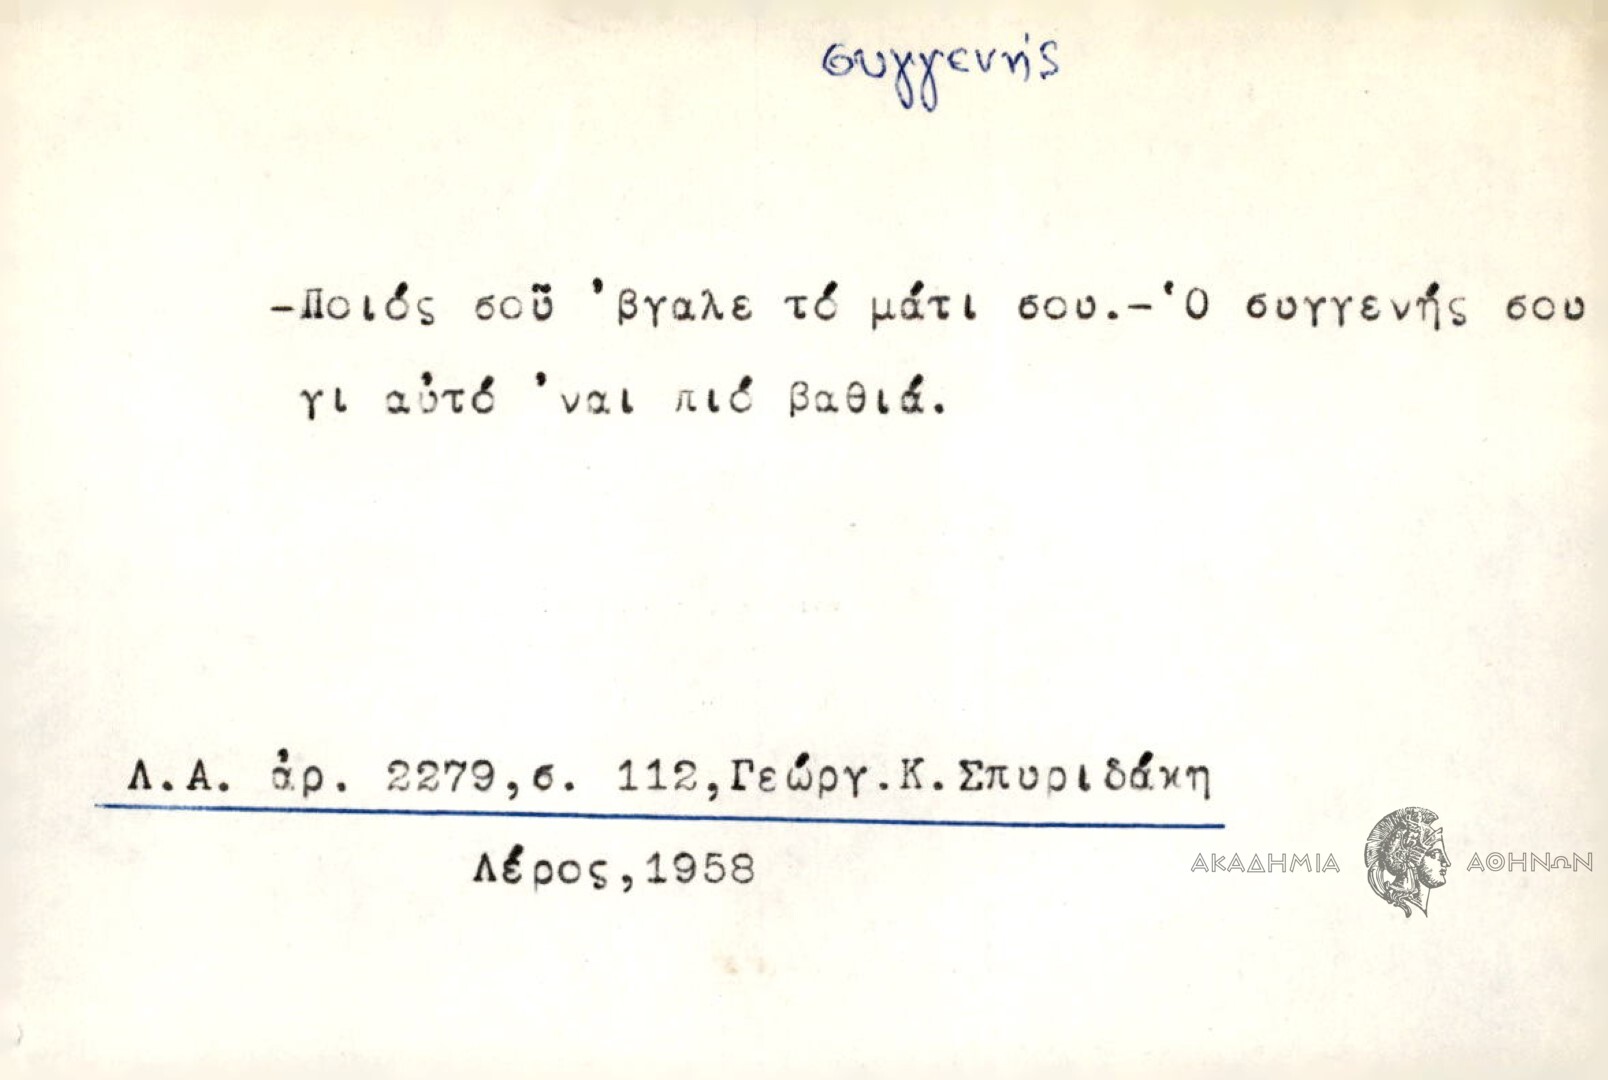 συγγενής
-Ποιός σοῦ 'βγαλε τό μάτι σου.-Ὁ συγγενής σου
γι αὐτό 'ναι πιό βαθιά.
Λ.Α. ἀρ. 2279,σ. 112,Γεώργ.Κ.Σπυριδάκη
Λέρος,1958
ΑΚΑΔΗΜΙΑ ΑΘΗΝΩΝ